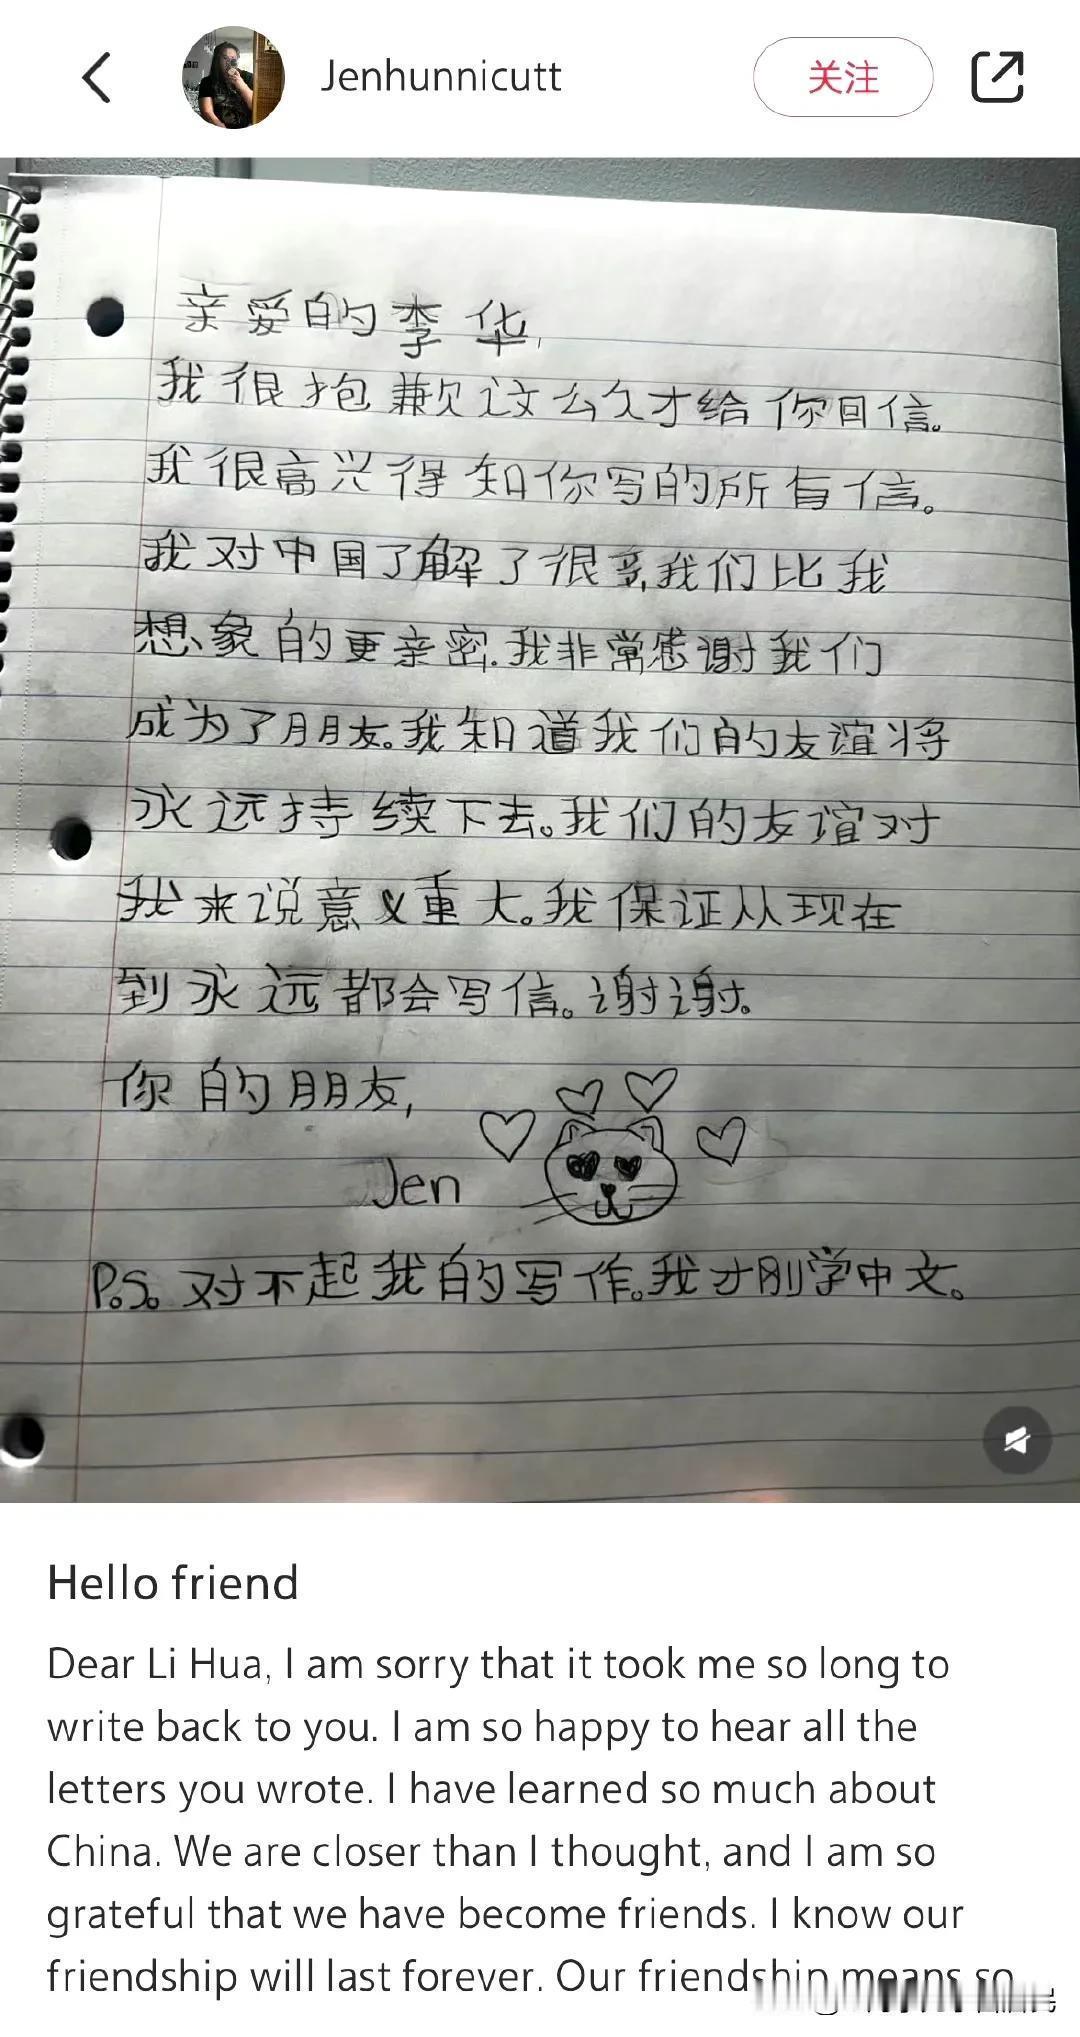 Jenhunnicutt
关注
亲爱的李华,
我很抱歉这么久才给你回信。
我很高兴得知你写的所有信。
我对中国了解了很多,我们比我
想象的更亲密.我非常感谢我们
成为了朋友。我知道我们的友谊将
永远持续下去。我们的友谊对
我来说意义重大。我保证从现在
到永远都会写信。谢谢。
你的朋友,
Jen
P.S. 对不起我的写作。我才刚学中文。
Hello friend
Dear Li Hua, I am sorry that it took me so long to
write back to you. I am so happy to hear all the
letters you wrote. I have learned so much about
China. We are closer than I thought, and I am so
grateful that we have become friends. I know our
friendship will last forever. Our friendship means so